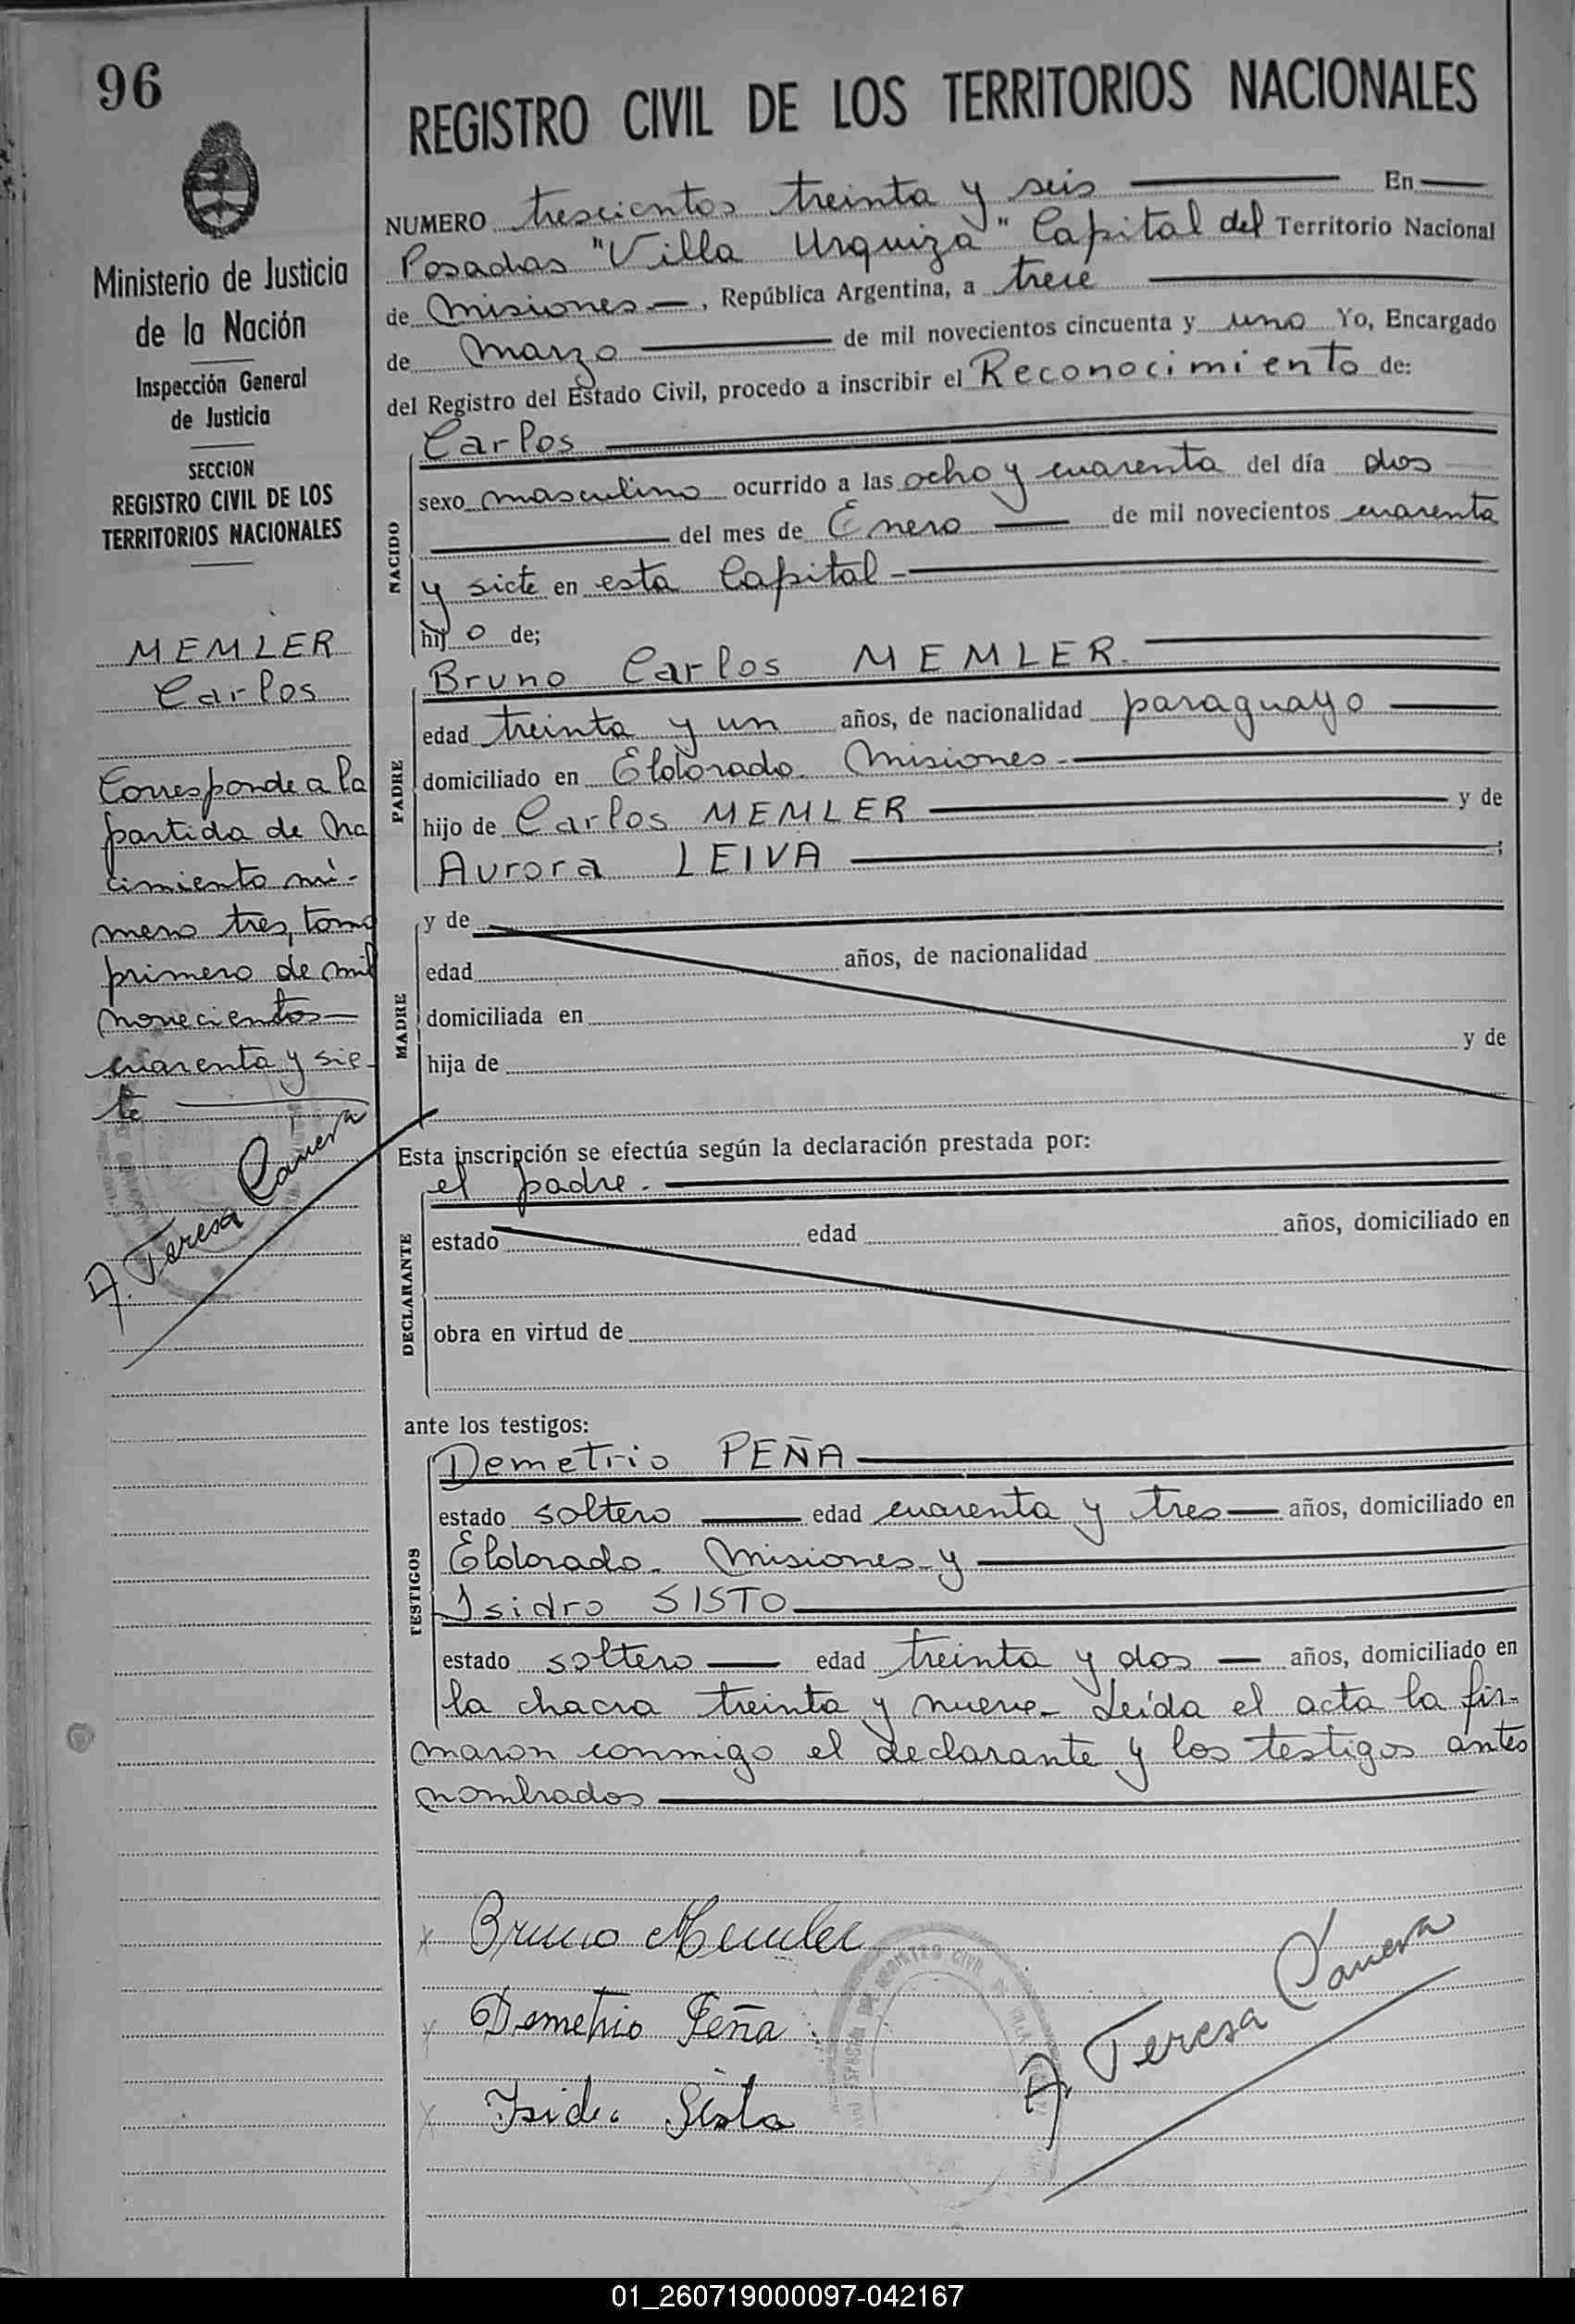 96
Ministerio de Justicia
de la Nación
Inspección General
de Justicia
SECCION
REGISTRO CIVIL DE LOS
TERRITORIOS NACIONALES
MEMLER
Carlos
Corresponde a la
partida de na
cimiento nú-
mero tres, tomo
primero de mil
novecientos
cuarenta y sie-
te
A. Teresa Canera
REGISTRO CIVIL DE LOS TERRITORIOS NACIONALES
NUMERO trescientos treinta y seis En
Posadas "Villa Urquiza" Capital del Territorio Nacional
de Misiones, República Argentina, a trece
de Marzo de mil novecientos cincuenta y uno Yo, Encargado
del Registro del Estado Civil, procedo a inscribir el Reconocimiento de:
NACIDO
Carlos
sexo masculino ocurrido a las ocho y cuarenta del día dos
del mes de Enero de mil novecientos cuarenta
y siete en esta Capital
hijo de;
PADRE
Bruno Carlos MEMLER.
edad treinta y un años, de nacionalidad paraguayo
domiciliado en Eldorado. Misiones.
hijo de Carlos MEMLER y de
Aurora LEIVA ;
MADRE
y de
edad años, de nacionalidad
domiciliada en
hija de y de
Esta inscripción se efectúa según la declaración prestada por:
DECLARANTE
el padre.
estado edad años, domiciliado en
obra en virtud de
ante los testigos:
TESTIGOS
Demetrio PEÑA
estado soltero edad cuarenta y tres años, domiciliado en
Eldorado. Misiones y
Isidro SISTO
estado soltero edad treinta y dos años, domiciliado en
la chacra treinta y nueve. Leída el acta la fir-
maron conmigo el declarante y los testigos antes
nombrados
x Bruno Memler
x Demetrio Peña
x Isidro Sisto
A. Teresa Canera
01_260719000097-042167